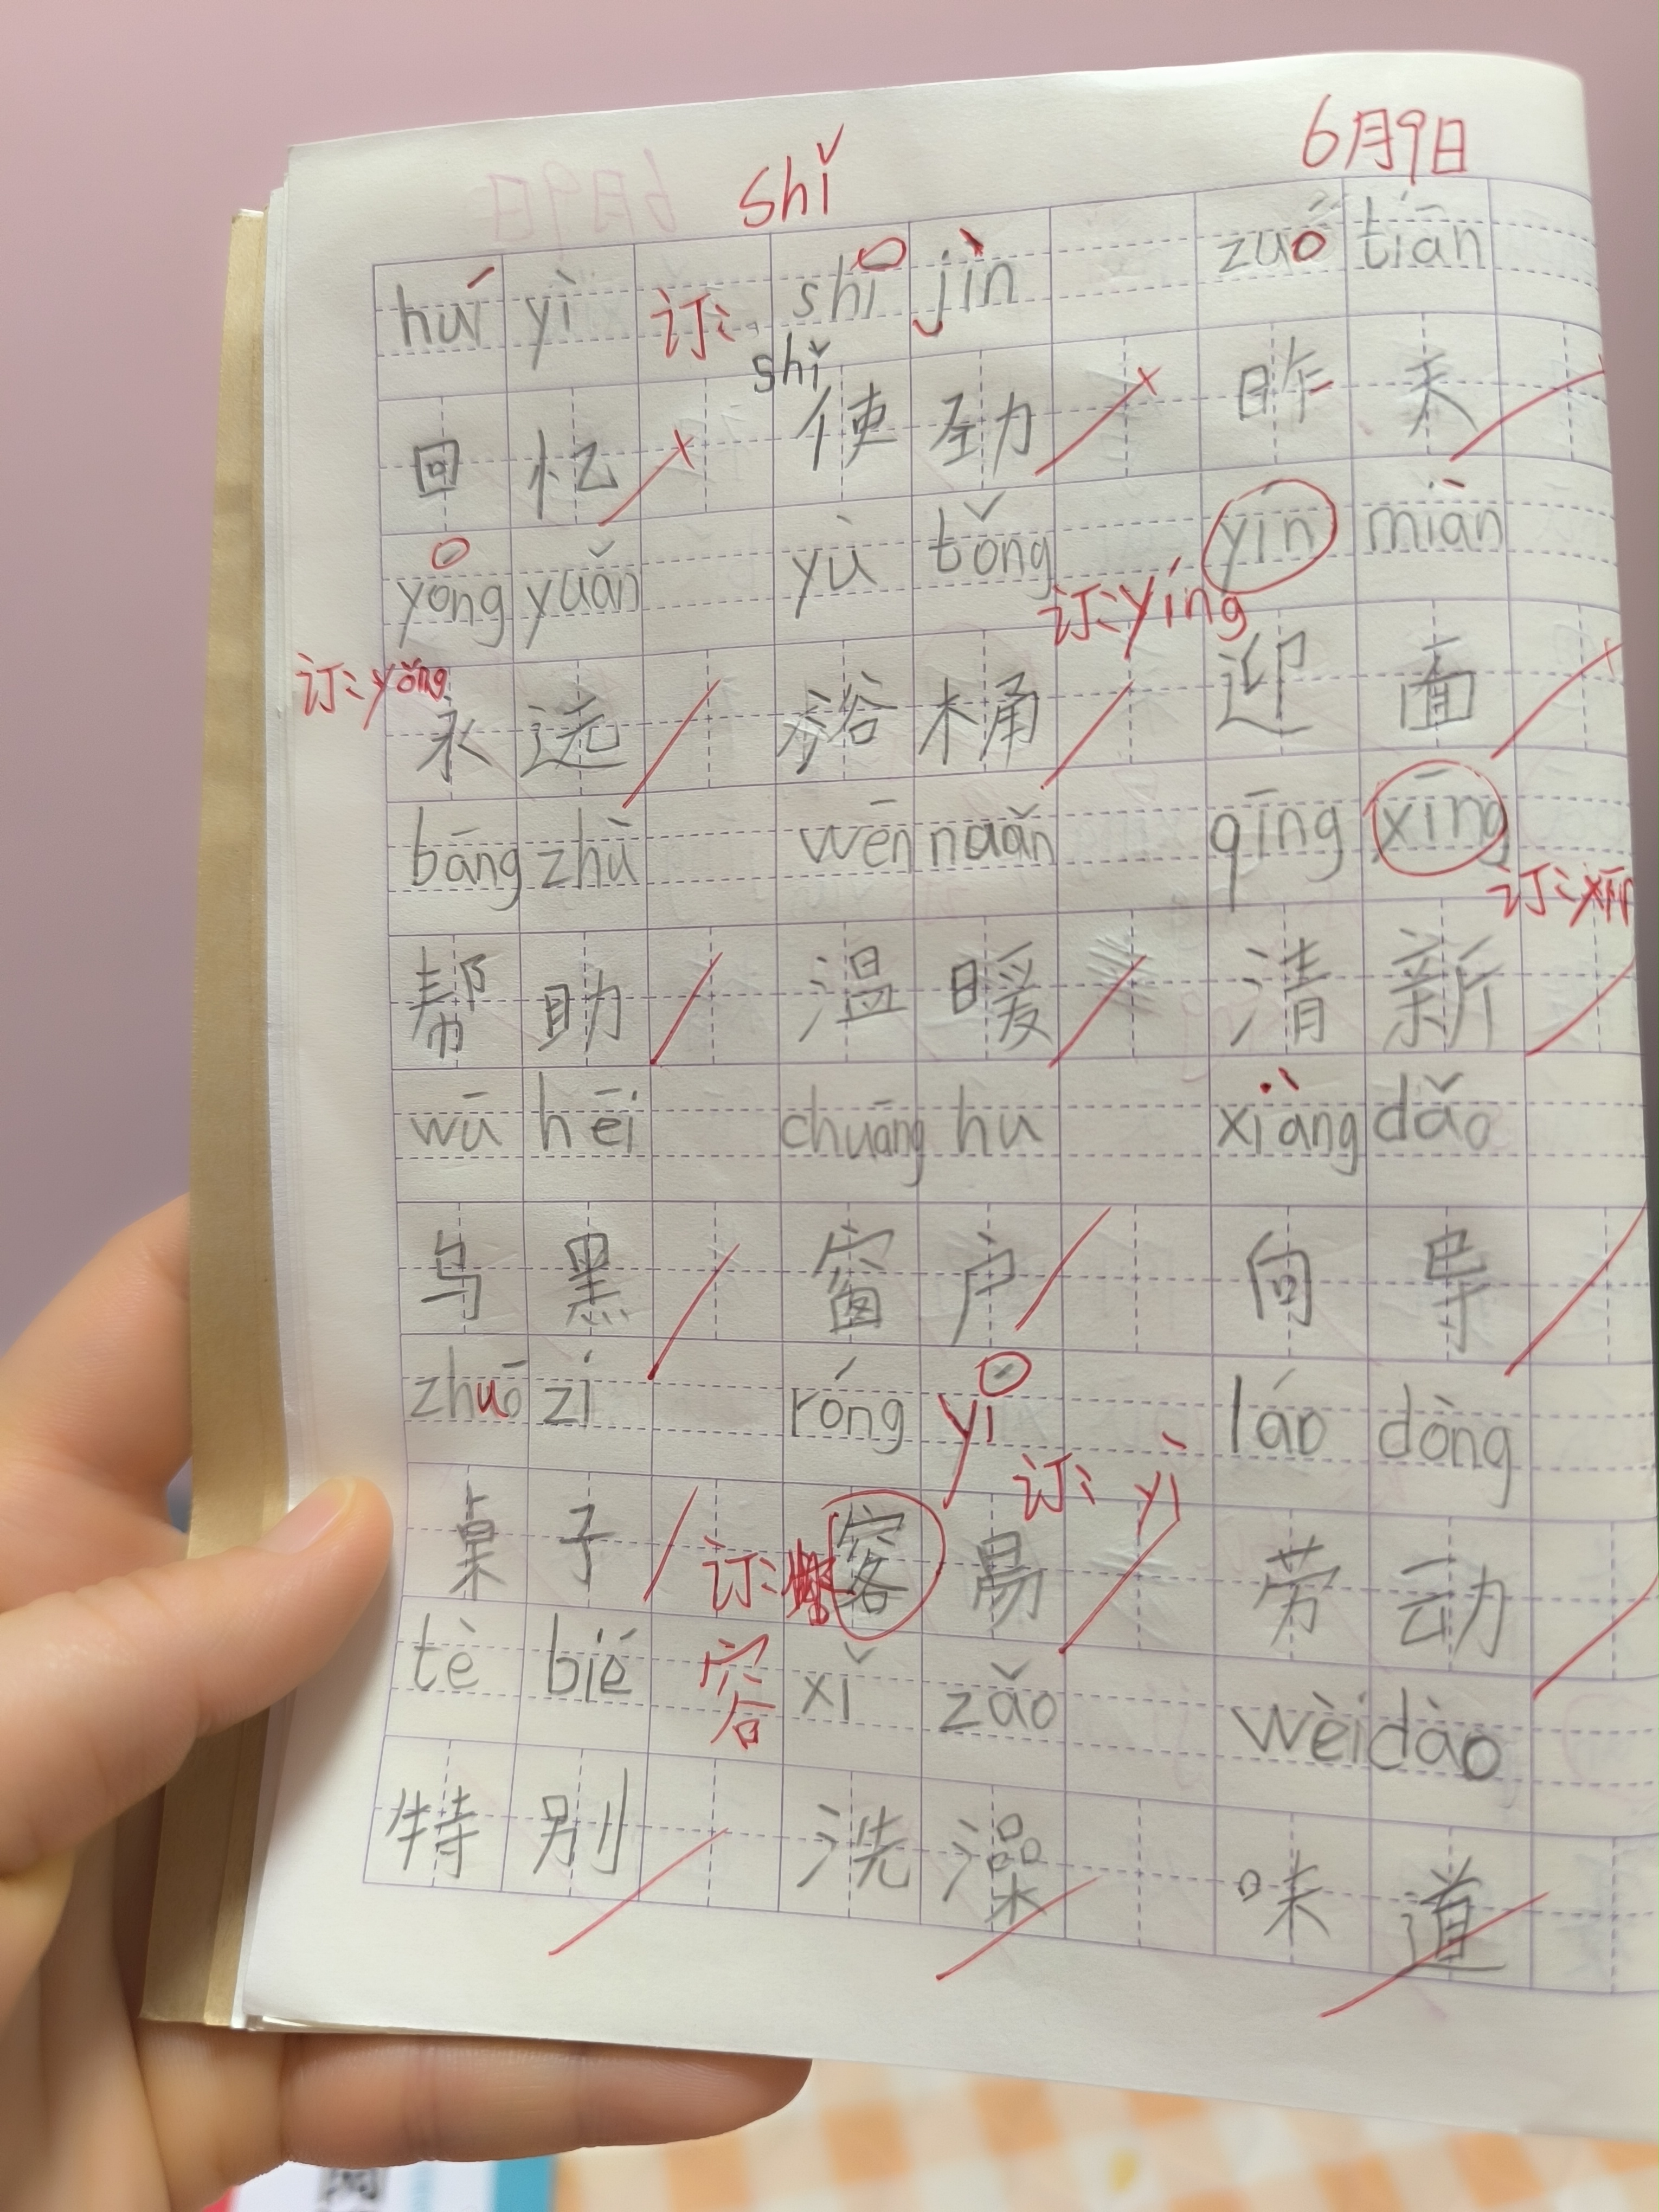 6月9日
shǐ
huí yì 订: shǐ jìn zuó tiān
shǐ
回忆 使劲 昨天
yǒng yuǎn yù tǒng yín miàn
订:yíng
订:yǒng
永远 浴桶 迎面
bāng zhù wēn nuǎn qīng xīng
订:xīn
帮助 温暖 清新
wū hēi chuāng hu xiàng dǎo
乌黑 窗户 向导
zhuō zi róng yì láo dòng
订: yì
桌子 订: 客易 劳动
容
tè bié xǐ zǎo wèi dào
特别 洗澡 味道